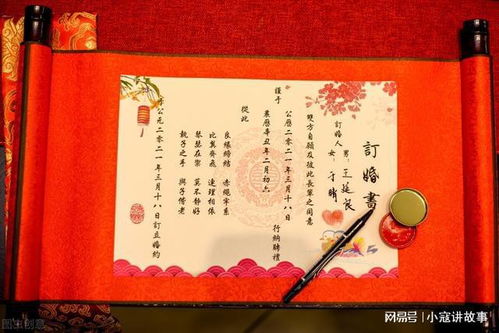 訂婚書
訂婚人 男：王
女：于晴
雙方自願及彼此長輩之同意
謹于
公歷二〇二一年三月十八日
農歷辛丑年二月初六 行納聘禮
從此
良緣締結 赤繩字系
比翼齊飛 連理相依
琴瑟在禦 莫不靜好
執子之手 與子偕老
于公元二〇二一年三月十八日訂立婚約
网易号 | 小寇讲故事